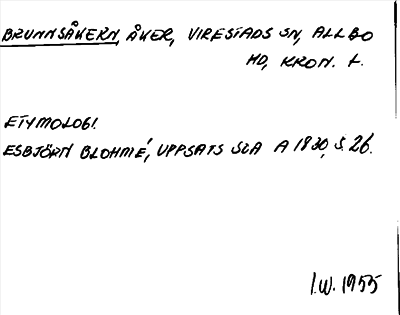 BRUNNSÅKERN, ÅKER, VIRESTADS SN, ALLBO
HD, KRON. L.
ETYMOLOGI.
ESBJÖRN BLOHMÉ, UPPSATS SLA A 1830, S. 26.
I.W. 1955